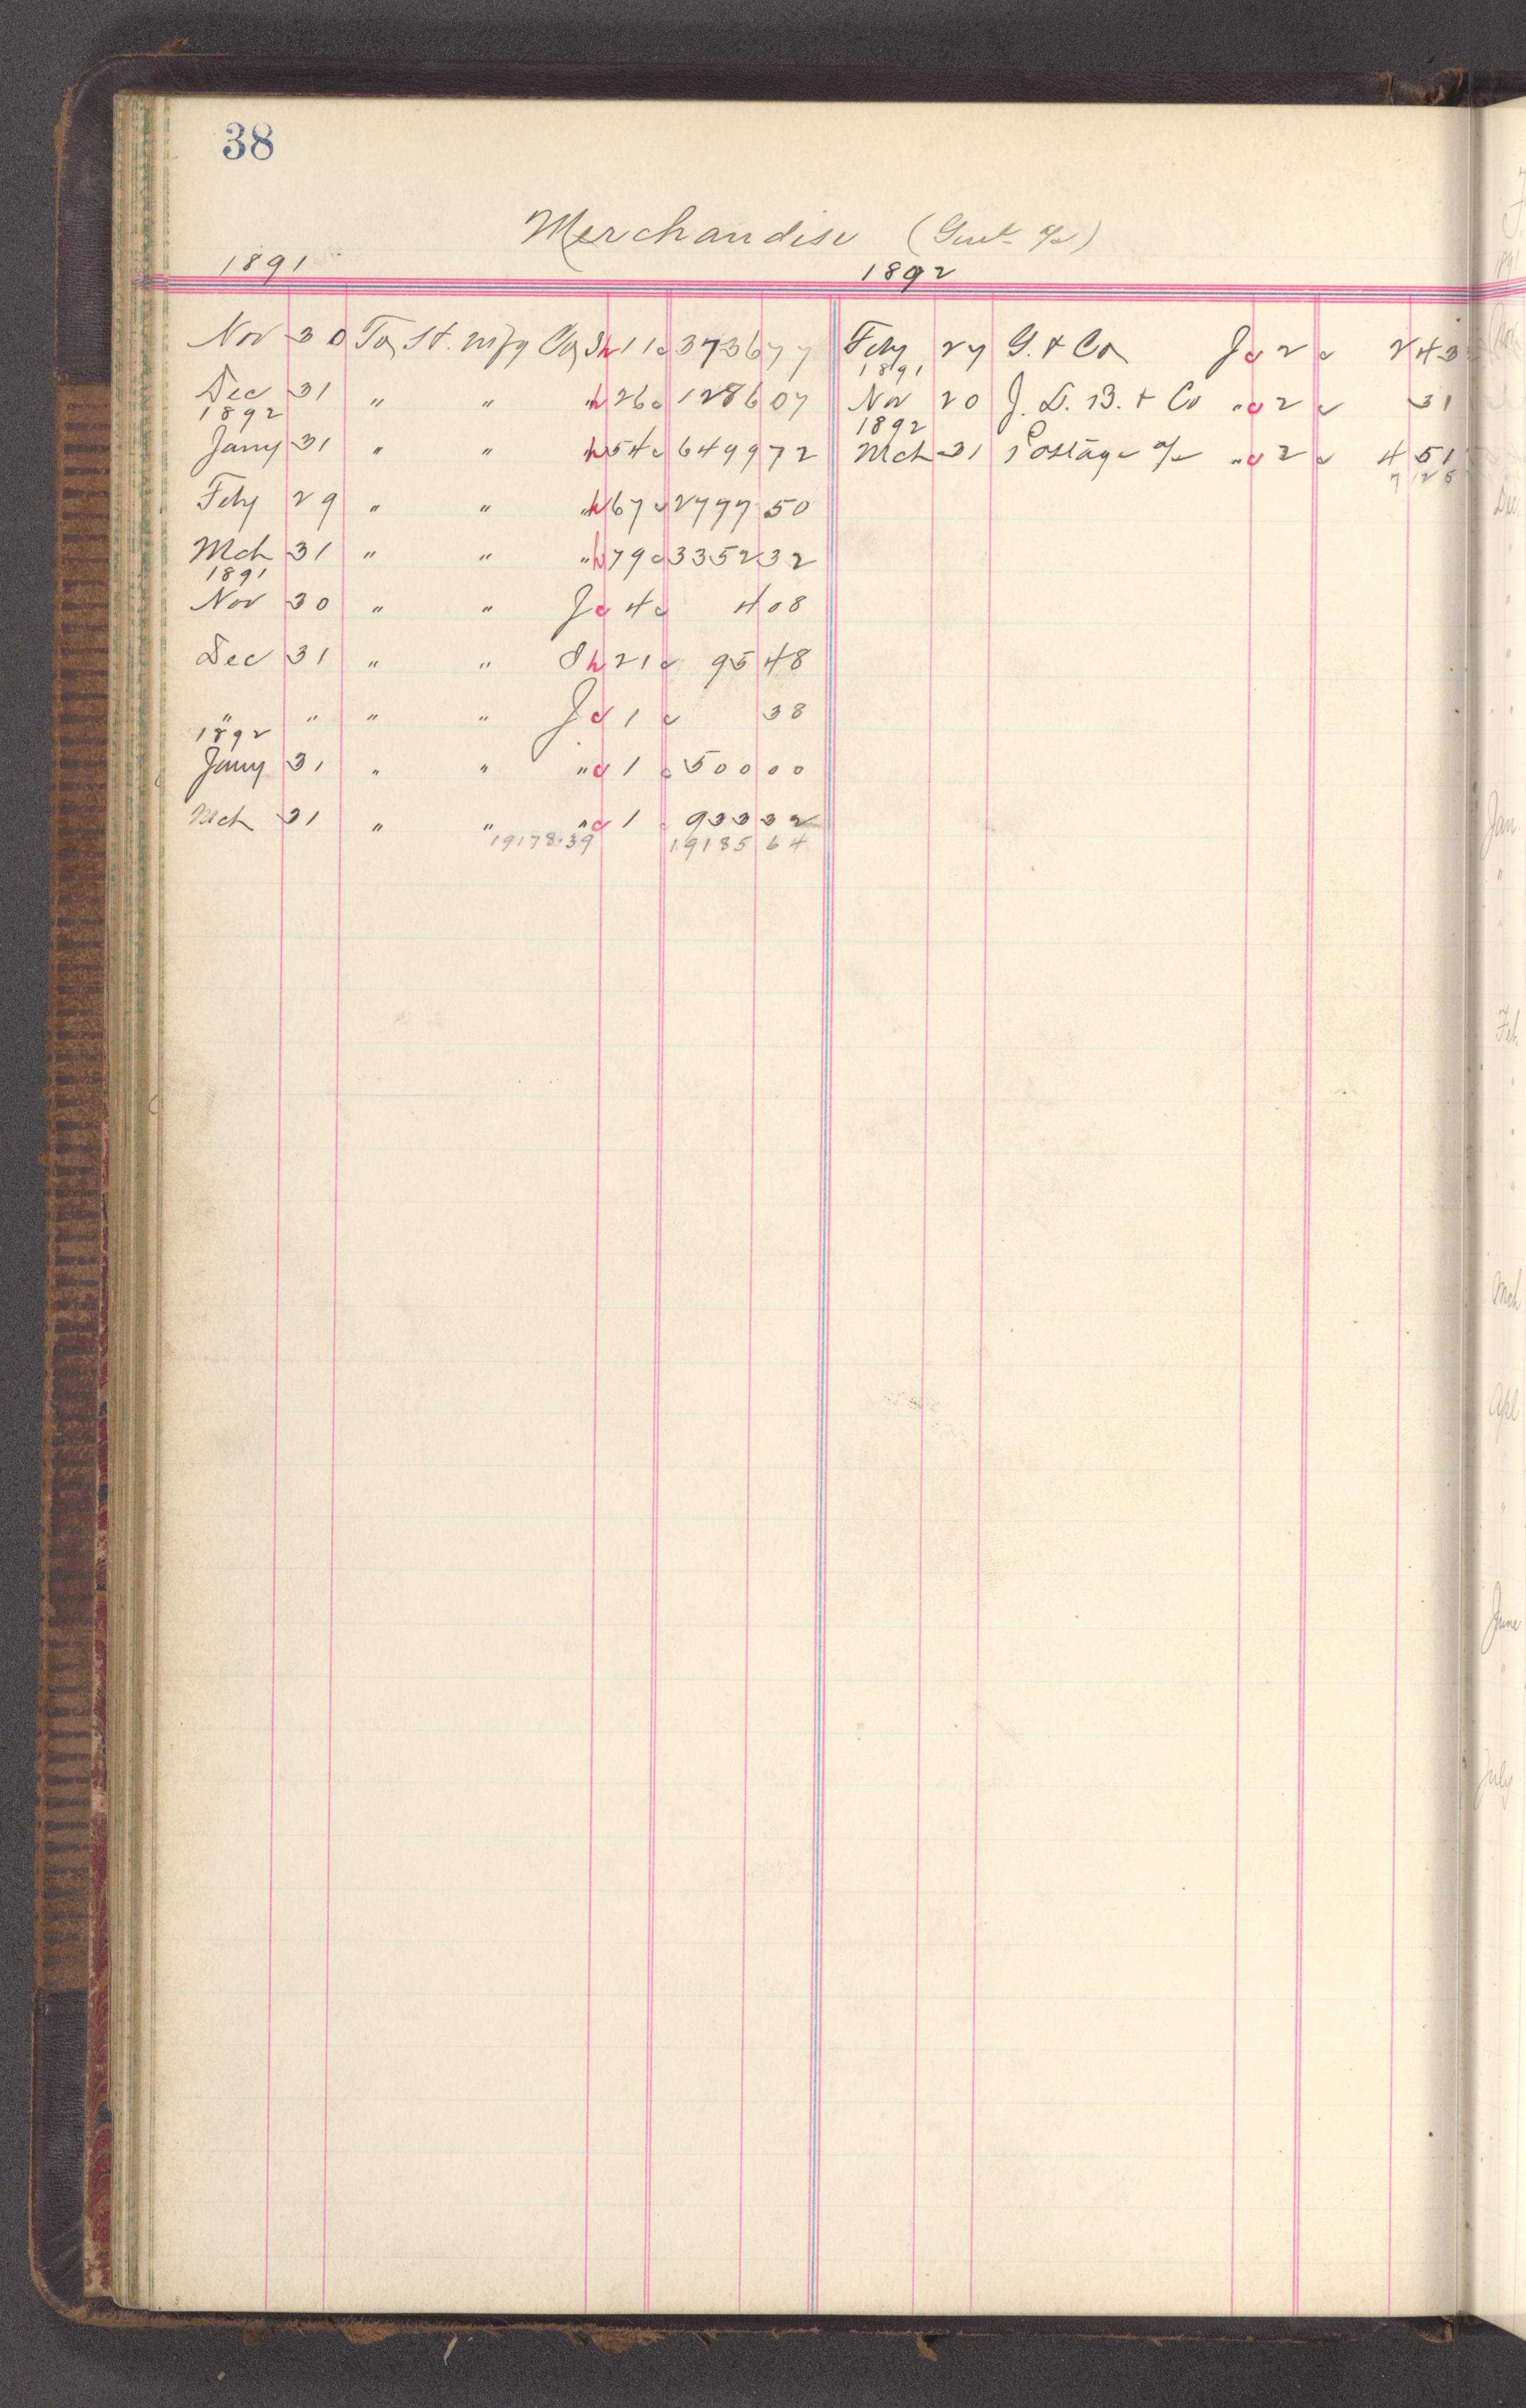 38
Merchandise (Genl a/c)
1891
Nov 30 To St. Mfg Co S 11 3736 77
Dec 31 " " " 26 1286 07
1892
Jany 31 " " 54 6499 72
Feby 29 " " " 67 2777 50
Mch 31 " " " 79 3352 32
1891
Nov 30 " " J 4 4 08
Dec 31 " " S 21 95 48
" " " " J 1 38
1892
Jany 31 " " " 1 500 00
Mch 31 " " " 1 933 32
19178.39 19185 64
1892
Feby 27 G. & Co J 2 2 43
1891
Nov 20 J. D. B. & Co " 2 31
1892
Mch 31 Postage a/c " 2 4 51
7 25
Dec.
Jan.
"
Feb.
Mch
Apl
"
June
"
July